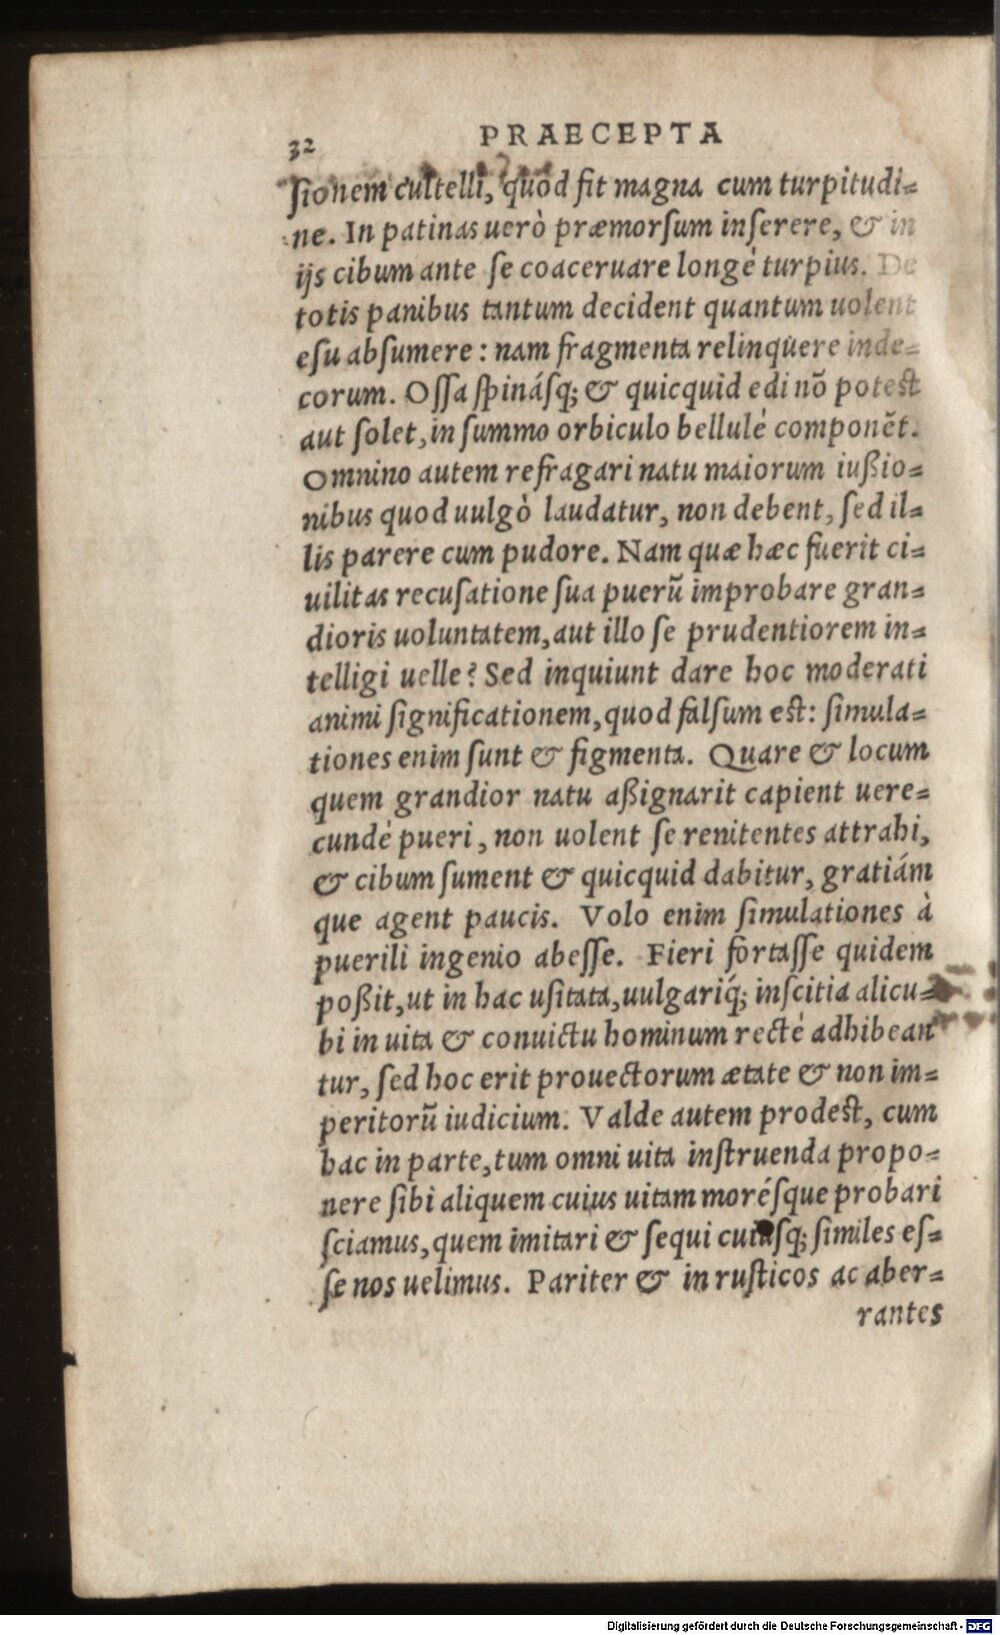 32 PRAECEPTA
ſionem cultelli, quod fit magna cum turpitudi⸗
ne. In patinas uerò præmorſum inſerere, & in
ijs cibum ante ſe coaceruare longè turpius. De
totis panibus tantum decident quantum uolent
eſu abſumere: nam fragmenta relinquere inde⸗
corum. Oſſa ſpináſq; & quicquid edi nō poteſt
aut ſolet, in ſummo orbiculo bellulè componēt.
Omnino autem refragari natu maiorum iußio⸗
nibus quod uulgò laudatur, non debent, ſed il⸗
lis parere cum pudore. Nam quæ hæc fuerit ci⸗
uilitas recuſatione ſua puerū improbare gran⸗
dioris uoluntatem, aut illo ſe prudentiorem in⸗
telligi uelle? Sed inquiunt dare hoc moderati
animi ſignificationem, quod falſum eſt: ſimula⸗
tiones enim ſunt & figmenta. Quare & locum
quem grandior natu aßignarit capient uere⸗
cundè pueri, non uolent ſe renitentes attrahi,
& cibum ſument & quicquid dabitur, gratiám
que agent paucis. Volo enim ſimulationes à
puerili ingenio abeſſe. Fieri fortaſſe quidem
poßit, ut in hac uſitata, uulgariq́; inſcitia alicu⸗
bi in uita & conuictu hominum rectè adhibean
tur, ſed hoc erit prouectorum ætate & non im⸗
peritorū iudicium. Valde autem prodeſt, cum
hac in parte, tum omni uita inſtruenda propo⸗
nere ſibi aliquem cuius uitam moréſque probari
ſciamus, quem imitari & ſequi cuiuſq; ſimiles eſ⸗
ſe nos uelimus. Pariter & in ruſticos ac aber⸗
rantes
Digitalisierung gefördert durch die Deutsche Forschungsgemeinschaft - DFG